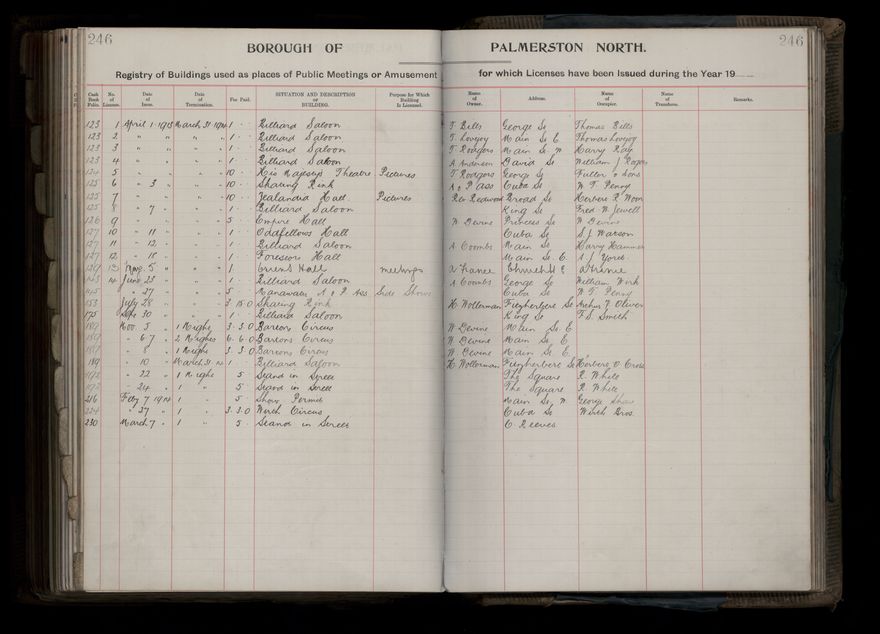 246
246
BOROUGH OF PALMERSTON NORTH.
Registry of Buildings used as places of Public Meetings or Amusement for which Licenses have been Issued during the Year 19
Cash Book Folio. No. of License. Date of Issue. Date of Termination. Fee Paid. SITUATION AND DESCRIPTION OF BUILDING. Purpose for Which Building is Licensed. Name of Owner. Address. Name of Occupier. Name of Transferee. Remarks.
123 1 April 1 1913 March 31 1914 1 Billiard Saloon T Bells George St Thomas Bells
123 2 " " " " 1 Billiard Saloon T Lovejoy Main St E Thomas Lovejoy
123 3 " " " " 1 Billiard Saloon T Rodgers Main St W Harry Ray
123 4 " " " " 1 Billiard Saloon A Anderson David St William J Rogers
124 5 " " " " 10 His Majestys Theatre Pictures T Rodgers George St Fuller & Sons
125 6 " 3 " " 10 Skating Rink A & P Ass Cuba St W T Penny
125 7 " " " " 10 Zealandia Hall Pictures Rev Redwood Broad St
125 8 " 7 " " 1 Billiard Saloon King St Fred W Jewell
126 9 " " " " 5 Empire Hall W Devine Princess St W Devine
127 10 " 11 " " 1 Oddfellows Hall Cuba St S J Watson
127 11 " 12 " " 1 Billiard Saloon A Coombs Main St Harry
127 12 " 15 " " 1 Foresters Hall Main St E A J
13 5 " " 1 Hall meetings
14 June 23 " " 1 Billiard Saloon A Coombs George St William
" 27 " " 5 Manawatu A & P Ass Side Shows Cuba St W T Penny
153 July 28 " " 3. 15. 0 Skating Rink H Wollerman Fitzherbert St Arthur J Oliver
175 Sept 30 " " 1 Billiard Saloon King St F S Smith
Nov. 5 " 1 Night 3. 3. 0 Bartons Circus W Devine Main St E
" 6 7 " 2 Nights 6. 6. 0 Bartons Circus W Devine Main St E
" 8 " 1 Night 3 3 0 Bartons Circus W Devine Main St E
189 " 10 " March 31 1 Billiard Saloon H Wollerman Fitzherbert St Cross
192 " 22 " 1 Night 5 Stand in Street The Square R White
192 " 24 " 1 " 5 Stand in Street The Square R White
216 Feby 7 1914 1 " 5 Show Permit Main St, W George Shaw
224 " 27 " 1 " 3. 3. 0 Wirth Circus Cuba St Wirth Bros
230 March 7 " 1 " 5 Stand in Street C Reeves